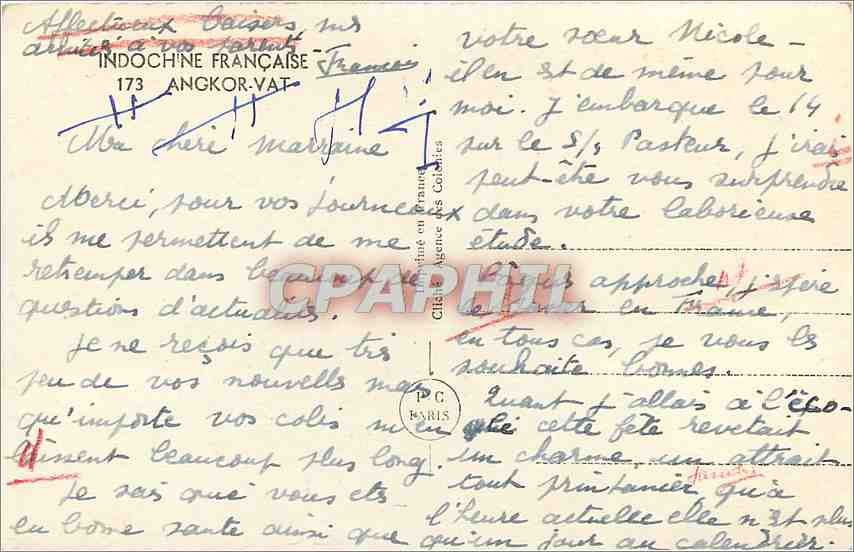 Affectueux baisers, mes
amitiés à vos parents
François
INDOCHINE FRANÇAISE
173 ANGKOR-VAT
Ma chère marraine
Merci, pour vos journeaux
ils me permettent de me
retremper dans beaucoup de
questions d'actualités.
Je ne reçois que très
peu de vos nouvelles mais
qu'importe vos colis m'en
disent beaucoup plus long.
Je sais que vous ets
en bonne sante ainsi que
votre sœur Nicole -
il en est de même pour
moi. J'embarque le 14
sur le S/s Pasteur, j'irai
peut-être vous surprendre
dans votre laborieuse
étude.
Pâques approche, j'espère
le passer en France,
en tous cas, je vous les
souhaite bonnes.
Quant j'allais à l'éco-
le cette fête revetait
un charme, un attrait
tout printanier, qu'à
l'heure actuelle elle n'est plus
qu'un jour au calendrier.
Imprimé en France
Cliché Agence des Colonies
P C
PARIS
CPAPHIL